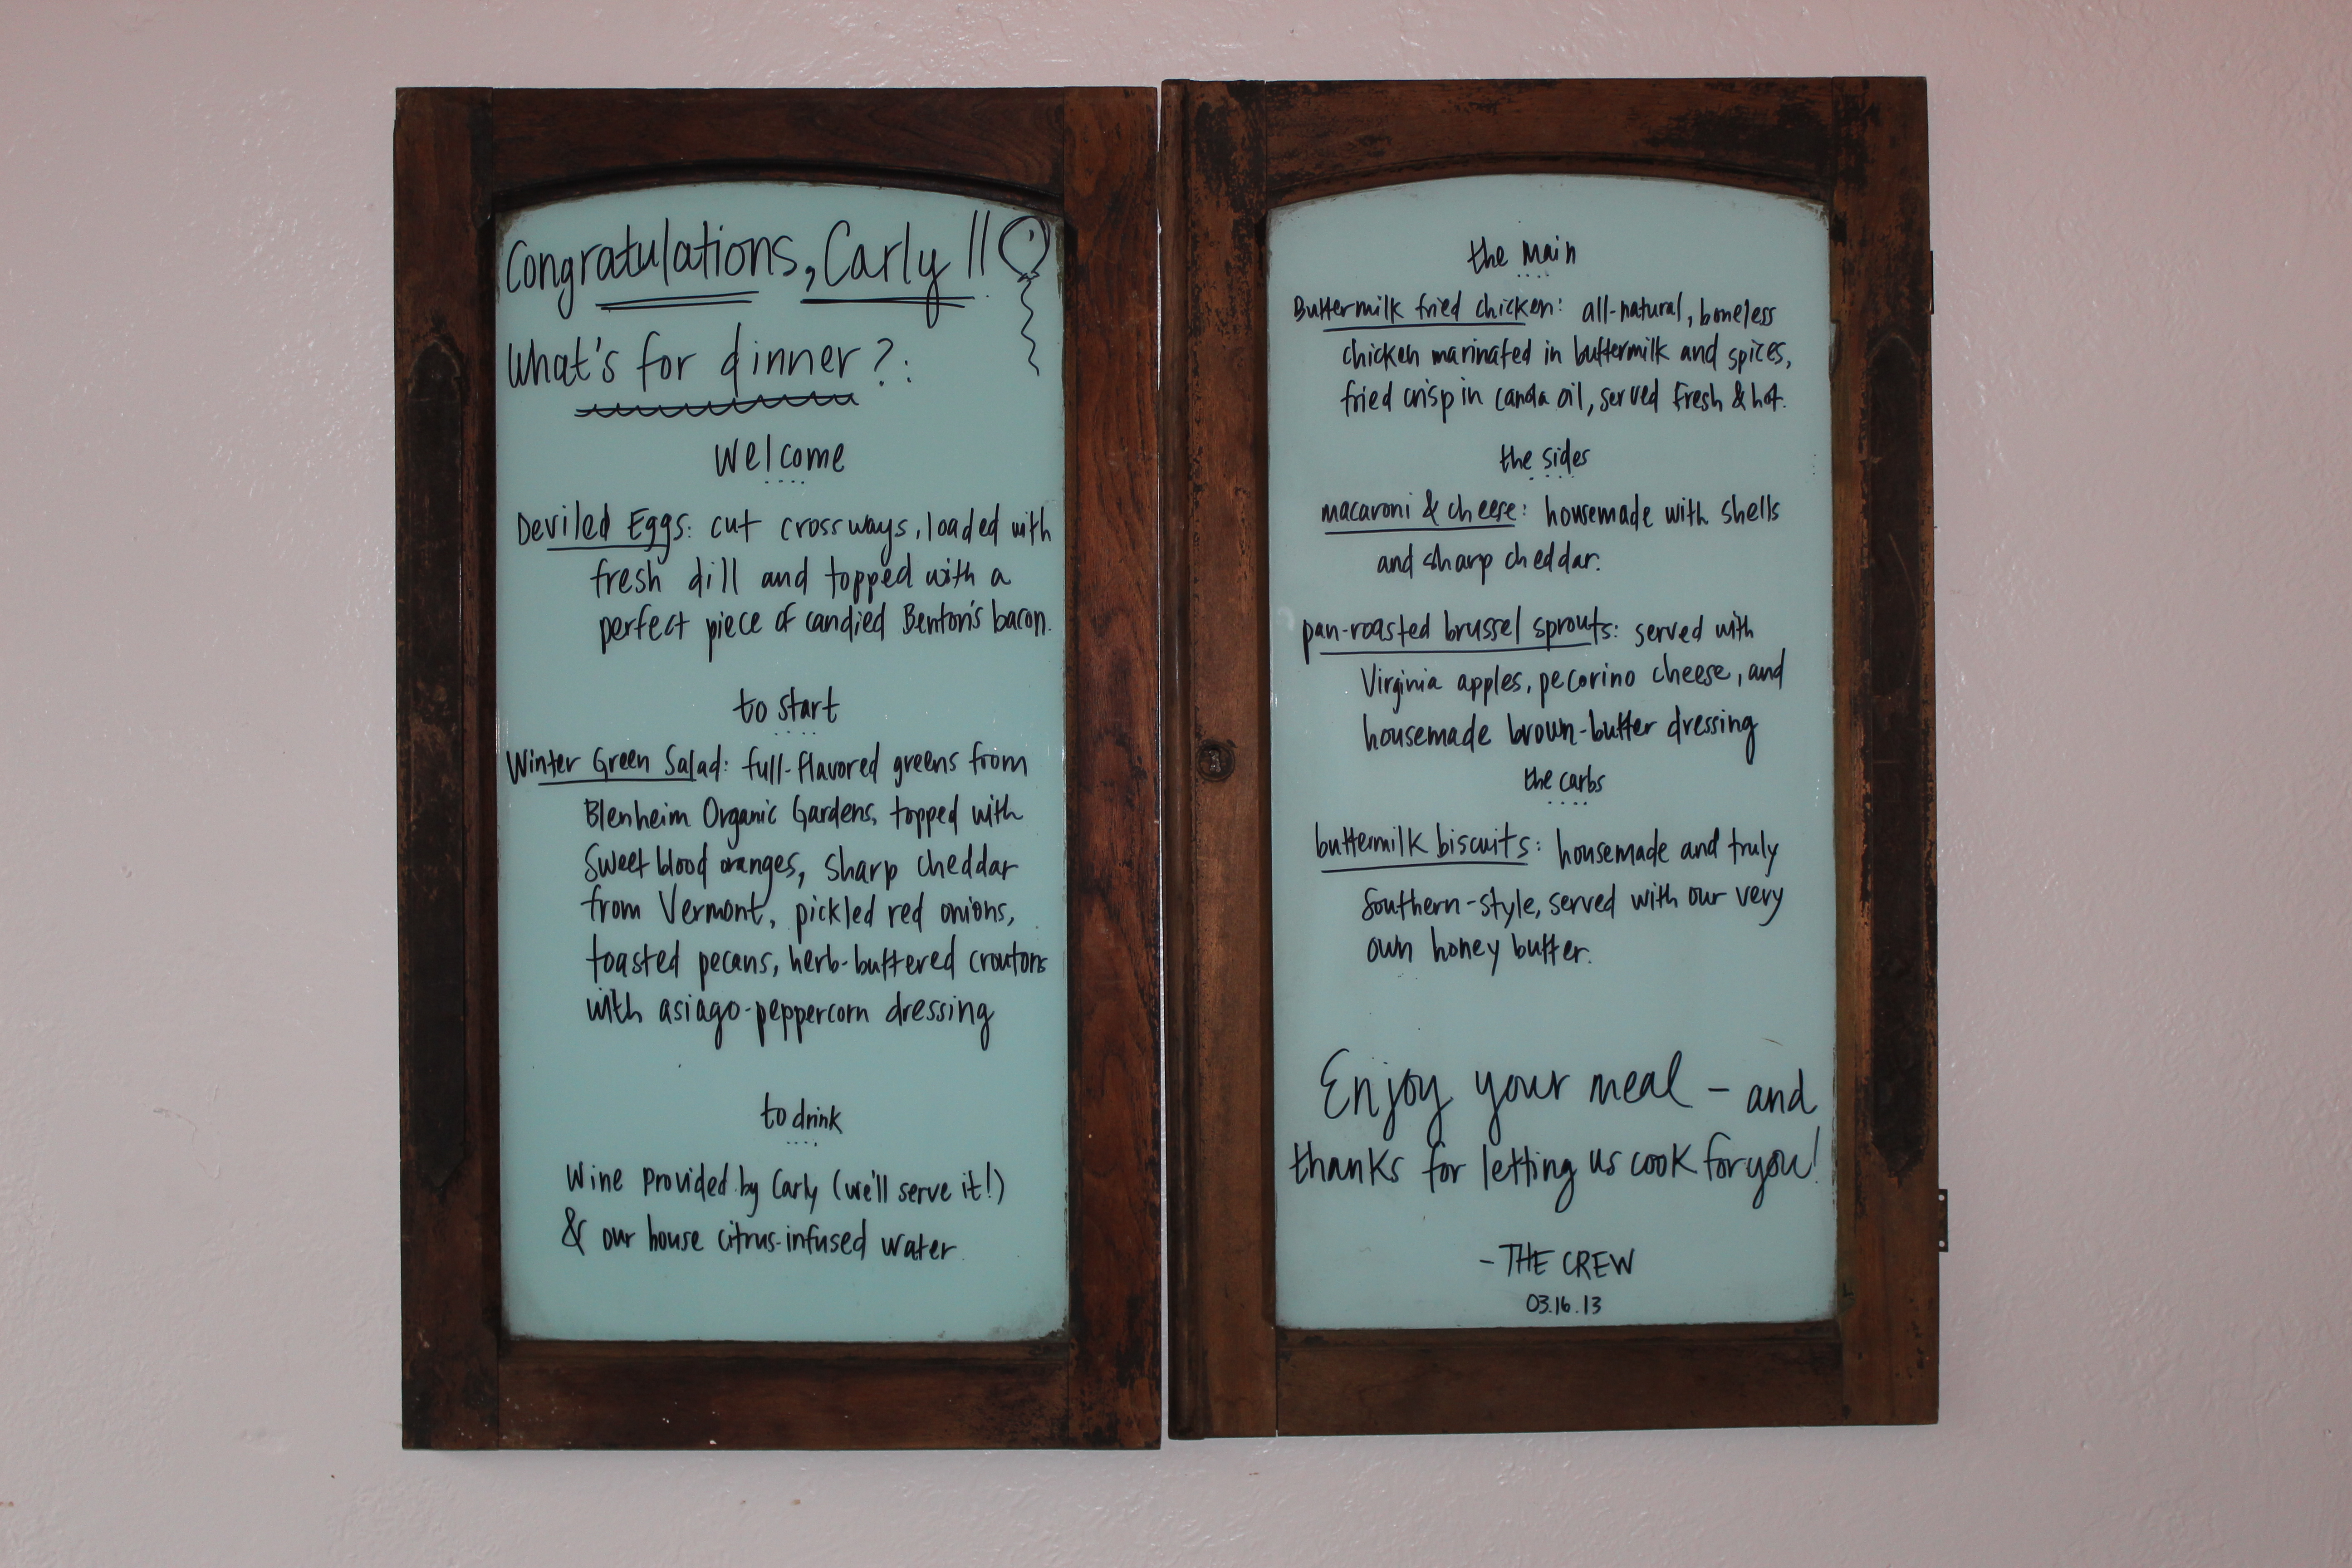 Congratulations, Carly!!
What's for dinner?:
Welcome
Deviled Eggs: cut crossways, loaded with
fresh dill and topped with a
perfect piece of candied Benton's bacon.
to start
Winter Green Salad: full-flavored greens from
Blenheim Organic Gardens, topped with
Sweet blood oranges, sharp cheddar
from Vermont, pickled red onions,
toasted pecans, herb-buttered croutons
with asiago-peppercorn dressing
to drink
Wine provided by Carly (we'll serve it!)
& our house citrus-infused water
the main
Buttermilk fried chicken: all-natural, boneless
chicken marinated in buttermilk and spices,
fried crisp in canola oil, served fresh & hot.
the sides
macaroni & cheese: housemade with shells
and sharp cheddar.
pan-roasted brussel sprouts: served with
Virginia apples, pecorino cheese, and
housemade brown-butter dressing
the carbs
buttermilk biscuits: housemade and truly
Southern-style, served with our very
own honey butter.
Enjoy your meal - and
thanks for letting us cook for you!
- THE CREW
03.16.13